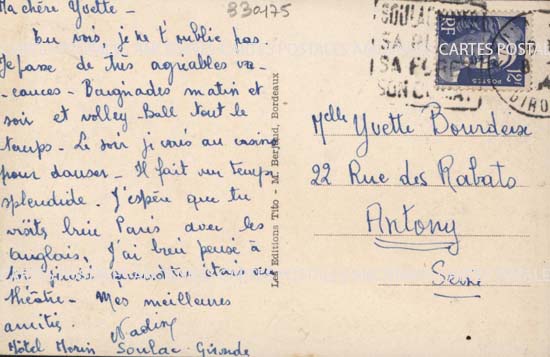 Ma chère Yvette -
Tu vois, je ne t'oublie pas
Je passe de très agréables va-
cances - Baignades matin et
soir et volley-Ball tout le
temps - Le soir je vais au casino
pour danser - Il fait un temps
splendide. J'espère que tu
visites bien Paris avec les
anglais, J'ai bien pensé à
toi jeudi quand tu étais au
théâtre - Mes meilleures
amitiés.
Nadine
Hôtel Morin Soulac Gironde
830175
Les Editions Tito - M. Berjaud, Bordeaux
SOULAC
SA
SA
SON
CARTES POSTALES
POSTES
Melle Yvette Bourdeix
22 Rue des Rabats
Antony
Seine